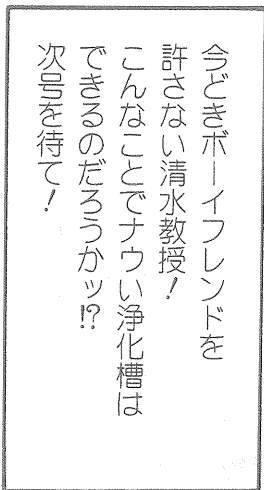 今どきボーイフレンドを
許さない清水教授！
こんなことでナウい浄化槽は
できるのだろうかッ!?
次号を待て！